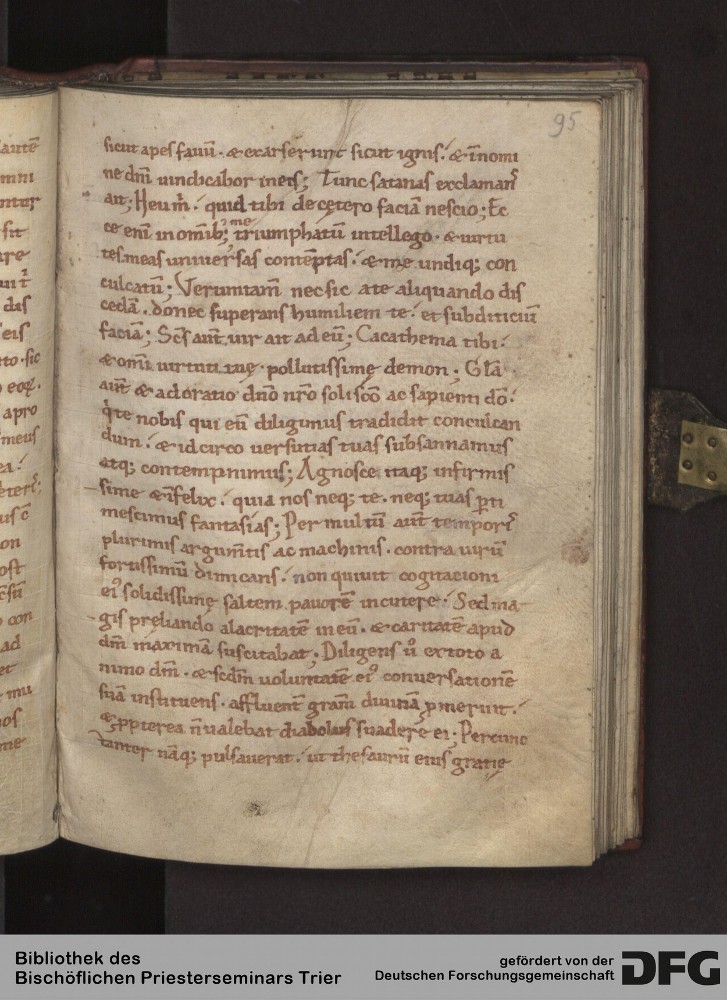 95
sicut apes fauū · & exarserunt sicut ignis ⁏ & ı̄ nomi
ne dn̄i uindicabor in eis ; Tunc satanas exclamanſ
ait ; Heu m̄ ⁏ quid tibi de cętero faciā nescio ; Ec
ce eni in omīb; me triumphatū intellego · & uirtu
tes meas uniuersas contēptas ⁏ & me undiq; con
culcatū ; Verumtam̄ nec sic a te aliquando dis
cedā · donec superans humiliem te ⁏ et subditiciū
faciā ; Sc̄s aut̄ uir ait ad eū ; Cacathema tibi ⁏
& omı̄ uirtuti tuę · pollutissime demon ; Glā
aut̄ & adoratio dn̄o nr̄o soli sc̄o ac sapienti dō ⁏
q̇ te nobis qui eū diligimus tradidit conculcan
dum ⁏ & idcirco uersutias tuas subsannamus
atq; contempnimus ; Agnosce itaq; infirmis
sime & ı̄felix ⁏ quia nos neq; te · neq; tuas ꝑti
mescimus fantasias ; Per multū aut̄ temporis
plurimis argum̄tis ac machinis · contra uirū
fortissimū dimicans ⁏ non quiuit cogitacioni
ei᾿ solidissimę saltem pauorē incutere ⁏ Sed ma
gis pręliando alacritatē in eū · & caritatē apud
dm̄ maximā suscitabat ; Diligens u᾿ ex toto a
nimo dm̄ · & scdm̄ uoluntatē ei᾿ conuersationē
suā instituens · affluent̄ gram̄ diuinā ꝓmeruit ⁏
& ꝓpterea n̄ ualebat diabolus suadere ei ; Percunc
tanter nāq; pulsauerat ⁏ ut thesaurū eius gratię
Bibliothek des
Bischöflichen Priesterseminars Trier
gefördert von der
Deutschen Forschungsgemeinschaft
DFG